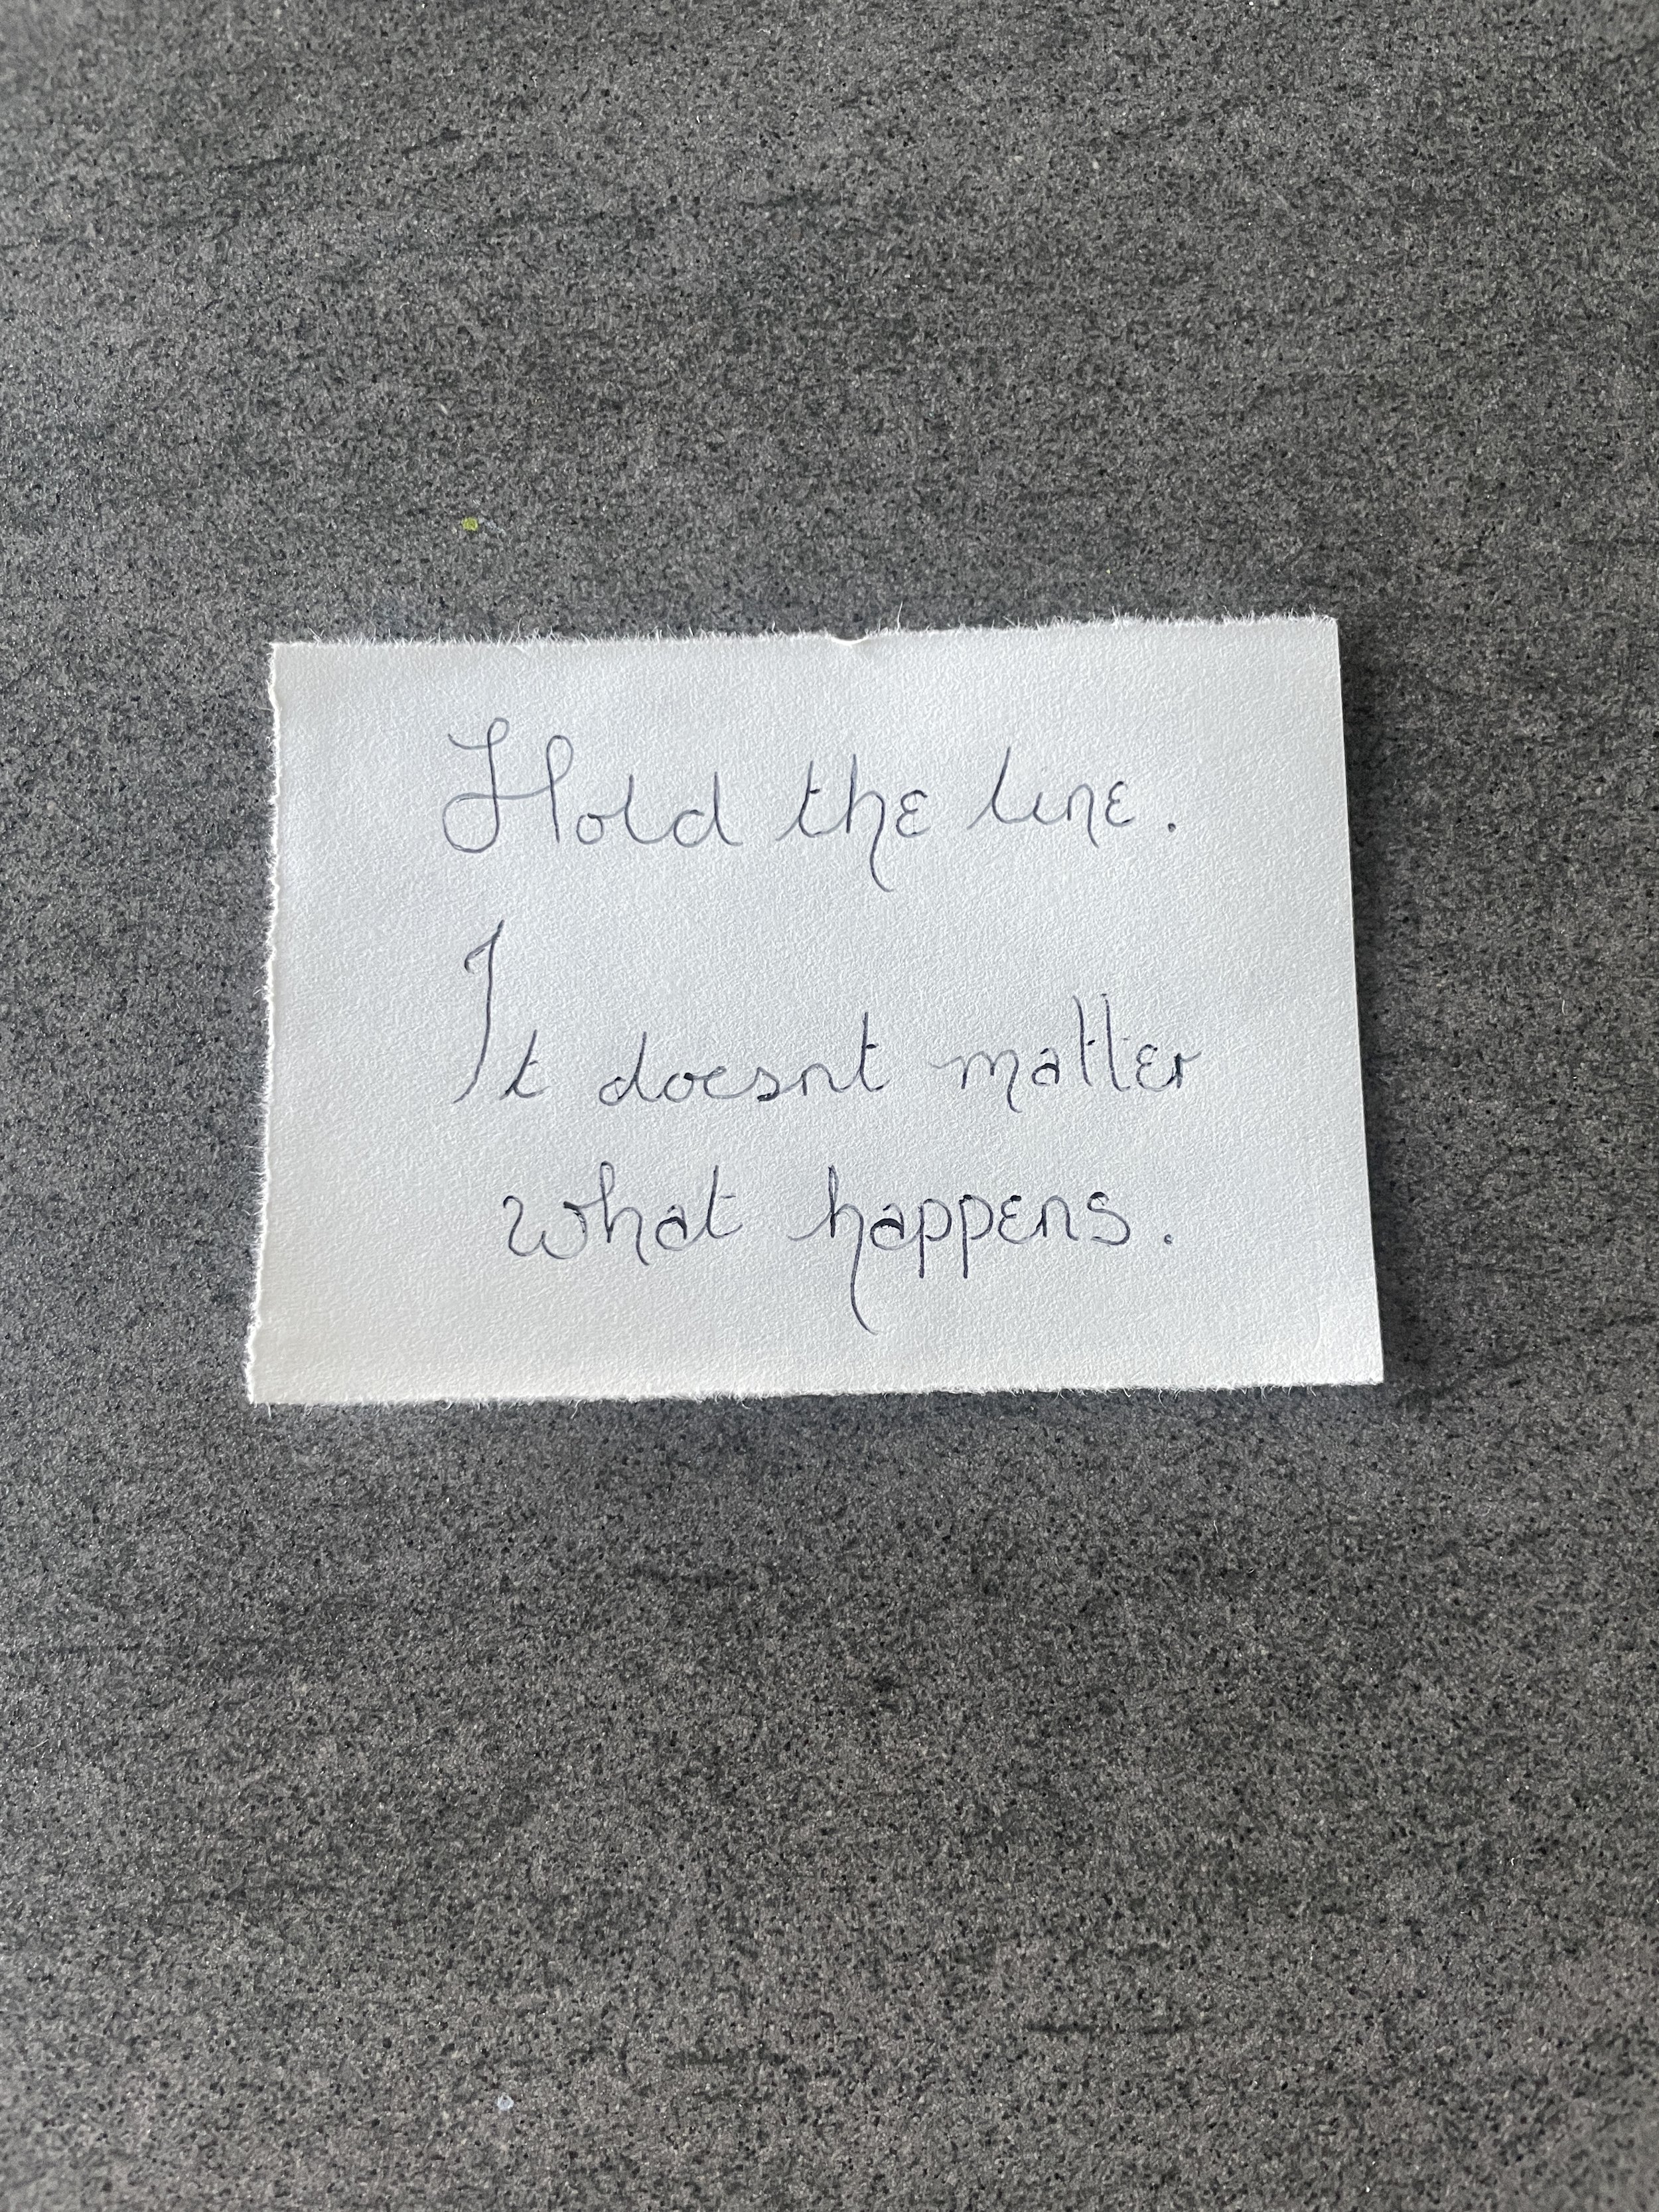 Hold the line.
It doesnt matter
what happens.